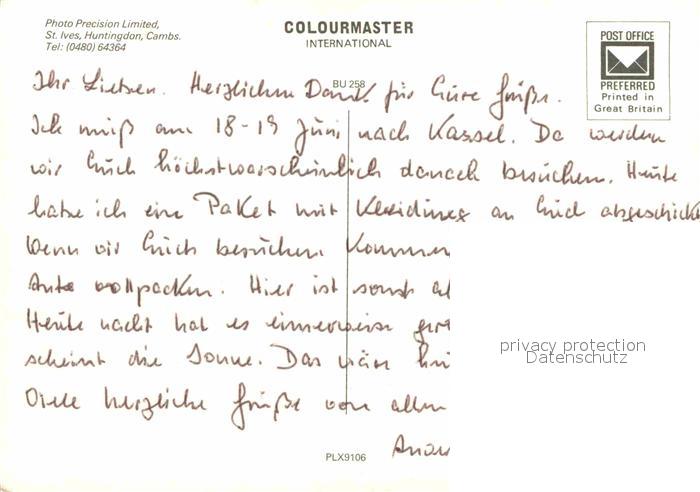 Photo Precision Limited,
St. Ives, Huntingdon, Cambs.
Tel: (0480) 64364
COLOURMASTER
INTERNATIONAL
POST OFFICE
PREFERRED
Printed in
Great Britain
BU 258
Ihr Lieben. Herzlichen Dank für Eure Grüße.
Ich muß am 18-19 Juni nach Kassel. Da werden
wir Euch höchstwarscheinlich danach besuchen. Heute
habe ich ein Paket mit Kleidung an Euch abgeschick
Wenn wir Euch besuchen kommen
Auto vollpacken. Hier ist sonst al
Heute nacht hat es
scheint die Sonne. Das wär
Viele herzliche Grüße von allen
privacy protection
Datenschutz
PLX9106